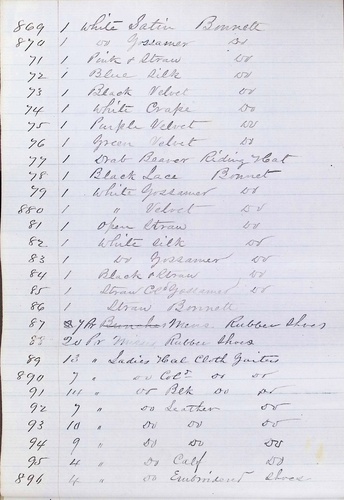 869 1 White Satin Bonnett
870 1 Do Gossamer Do
71 1 Pink & Straw Do
72 1 Blue Silk Do
73 1 Black Velvet Do
74 1 White Crape Do
75 1 Purple Velvet Do
76 1 Green Velvet Do
77 1 Drab Beaver Riding Hat
78 1 Black Lace Bonnet
79 1 White Gossamer Do
880 1 " Velvet Do
81 1 Open Straw Do
82 1 White Silk Do
83 1 Do Gossamer Do
84 1 Black & Straw Do
85 1 Straw Cld Gossamer Do
86 1 Straw Bonnett
87 27 Pr Bunches Mens Rubber Shoes
88 20 Pr Mens Rubber Shoes
89 13 " Ladies Hal Cloth Gaiters
890 7 " Do Cold Do Do
91 " Do Blk Do Do
92 7 " Do Leather Do
93 10 " Do Do Do
94 9 " Do Do Do
95 4 " Do Calf Do
896 4 " Do Embroidered Shoes